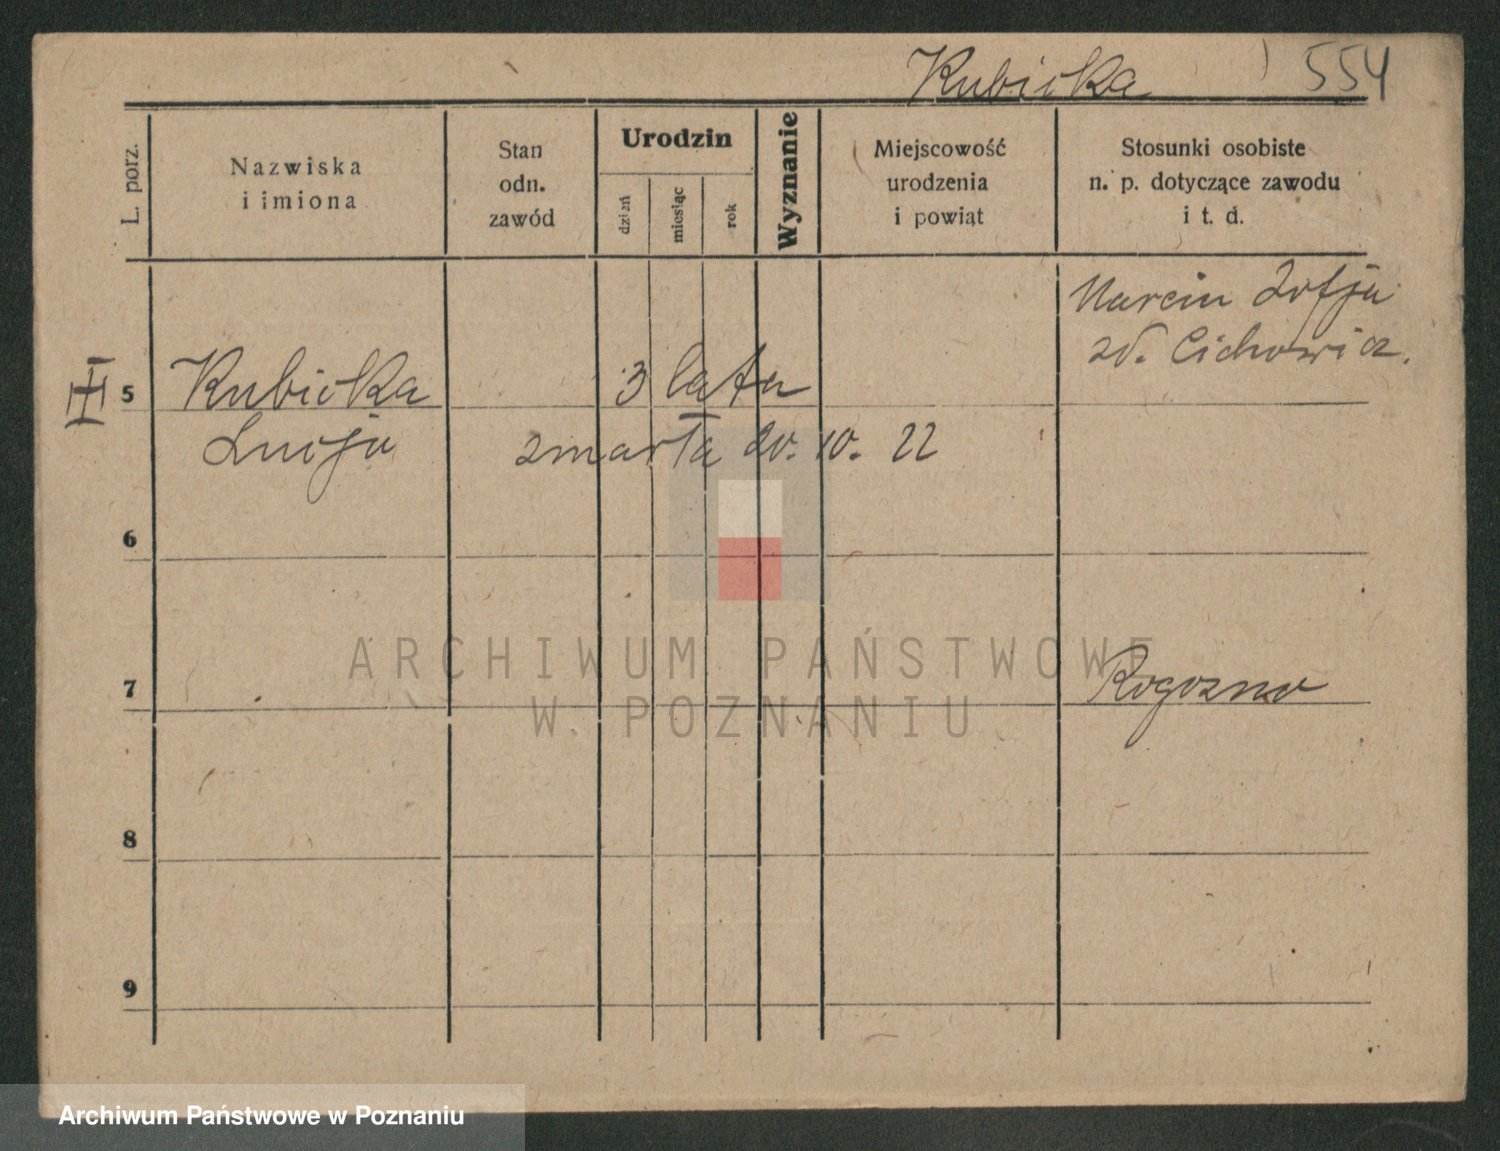 Kubicka 554
L. porz.
Nazwiska
i imiona
Stan
odn.
zawód
Urodzin
dzień
miesiąc
rok
Wyznanie
Miejscowość
urodzenia
i powiąt
Stosunki osobiste
n. p. dotyczące zawodu
i t. d.
Marcin Zofja
zd. Cichowicz.
5 Kubicka 3 lata
Lucja zmarła 20. 10. 22
6
7 Rogozno
8
9
ARCHIWUM PAŃSTWOWE
W POZNANIU
Archiwum Państwowe w Poznaniu